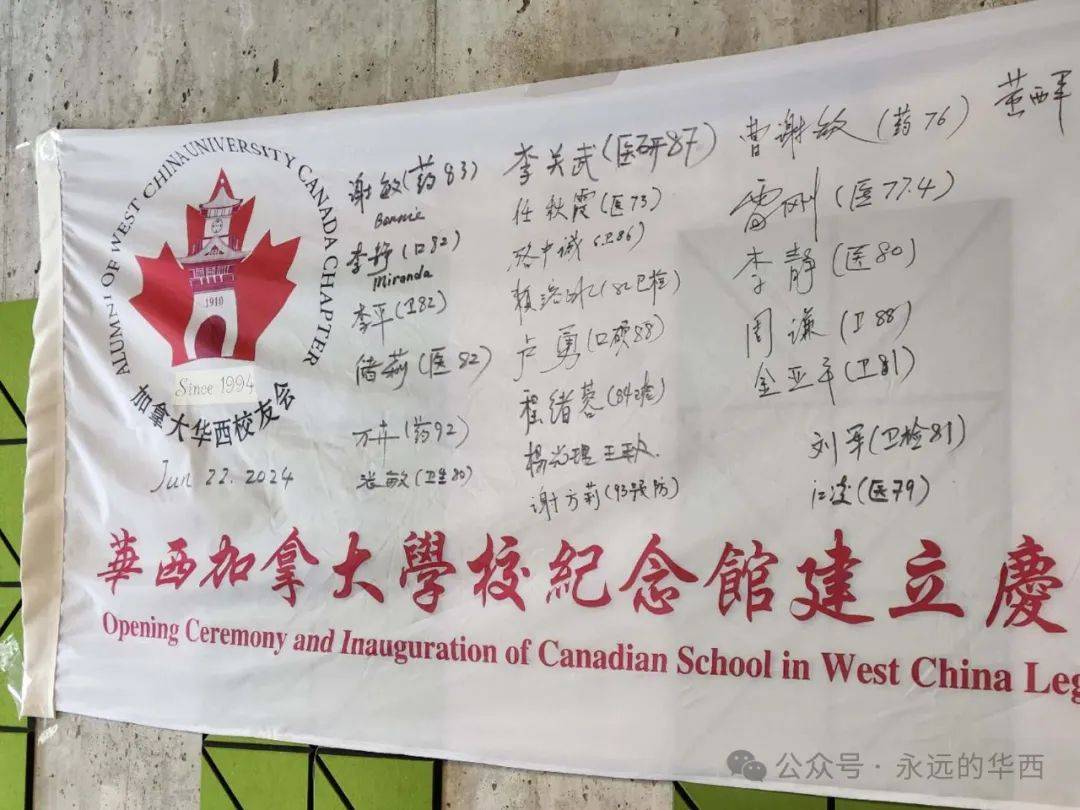 ALUMNI OF WEST CHINA UNIVERSITY CANADA CHAPTER
1910
Since 1994
加拿大华西校友会
Jun 22. 2024
谢敏(药83)
Bonnie
李静(口82)
Miranda
李平(卫82)
储莉(医82)
万卉(药92)
张敏(卫生80)
李关武(医研87)
任秋霞(医73)
骆中诚(卫86)
赖洛冰(82卫检)
卢勇(口硕88)
程绪蓉(84检)
谢方莉(93预防)
曹谢敏(药76)
雷刚(医77.4)
李静(医80)
周谦(卫88)
金亚平(卫81)
刘军(卫检81)
江凌(医79)
華西加拿大學校紀念館建立慶
Opening Ceremony and Inauguration of Canadian School in West China Leg
公众号·永远的华西